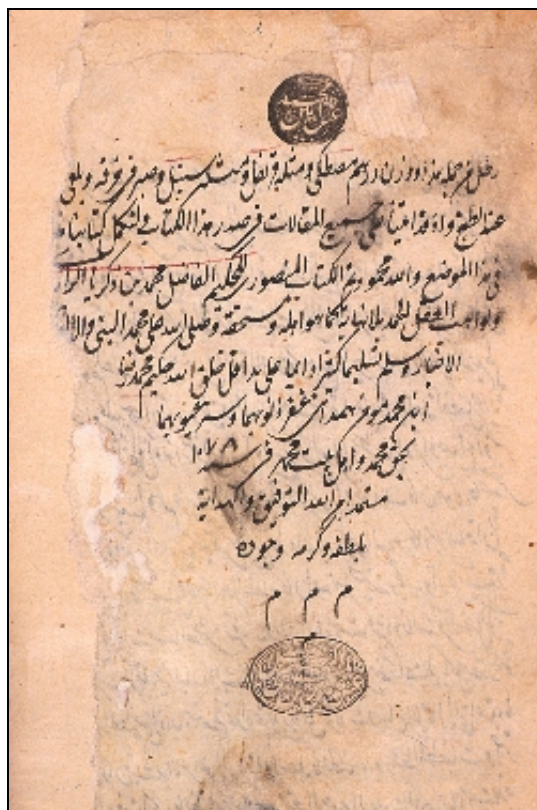 رطل من جملة هذا ووزن درهم مصطكى ومثله قرنفل ومثله سنبل وصر في خرقة ويلقى
عند الطبخ واذ قد اتينا على جميع المقالات في صدر هذا الكتاب فلنكمل كتابنا
في هذا الموضع والله محمود تم الكتاب المنصورى للحكيم الفاضل محمد بن زكريا الرازى
ولواهب العقل الحمد بلا نهاية كما هو اهله ومستحقه وصلى الله على محمد النبى وآله
الاخيار وسلم تسليما كثيرا دايما على يد اقل خلق الله حكيم محمد
ابن محمد مومن همدانى غفر الله ذنوبهما وستر عيوبهما
بحق محمد واهل بيت محمد فى سنه ۱۰۷۸
مستمدا من الله التوفيق والهداية
بلطفه وكرمه وجوده
م م م